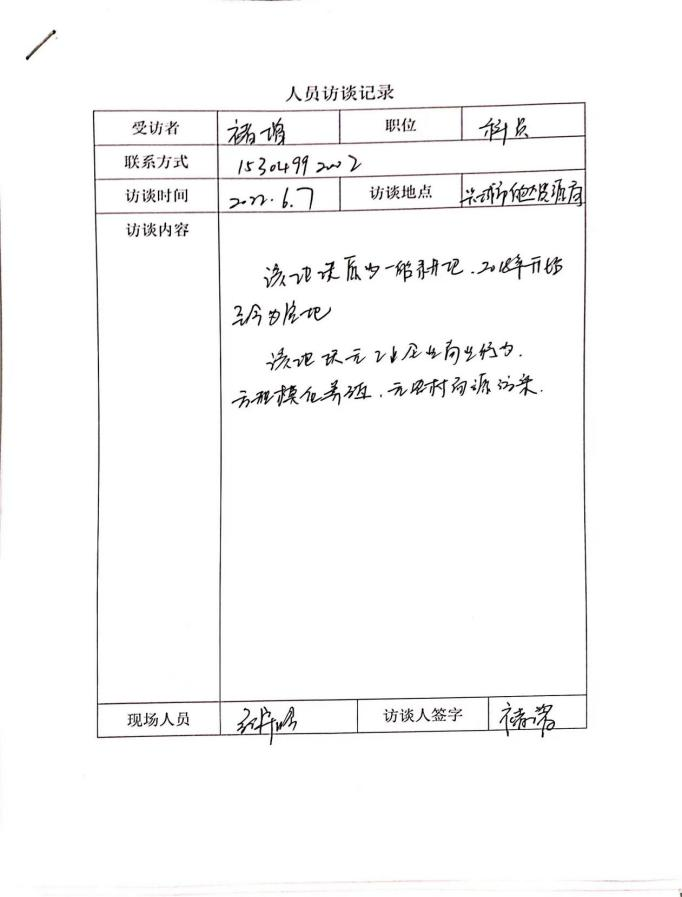 人员访谈记录
受访者 褚 职位 科员
联系方式 15304992002
访谈时间 2022.6.7 访谈地点 兴城市自然资源局
访谈内容
该地块原为一般耕地、2018年开始
至今为空地
该地块无工业企业商业行为.
无规模化养殖.无农村面源污染.
现场人员 访谈人签字 褚